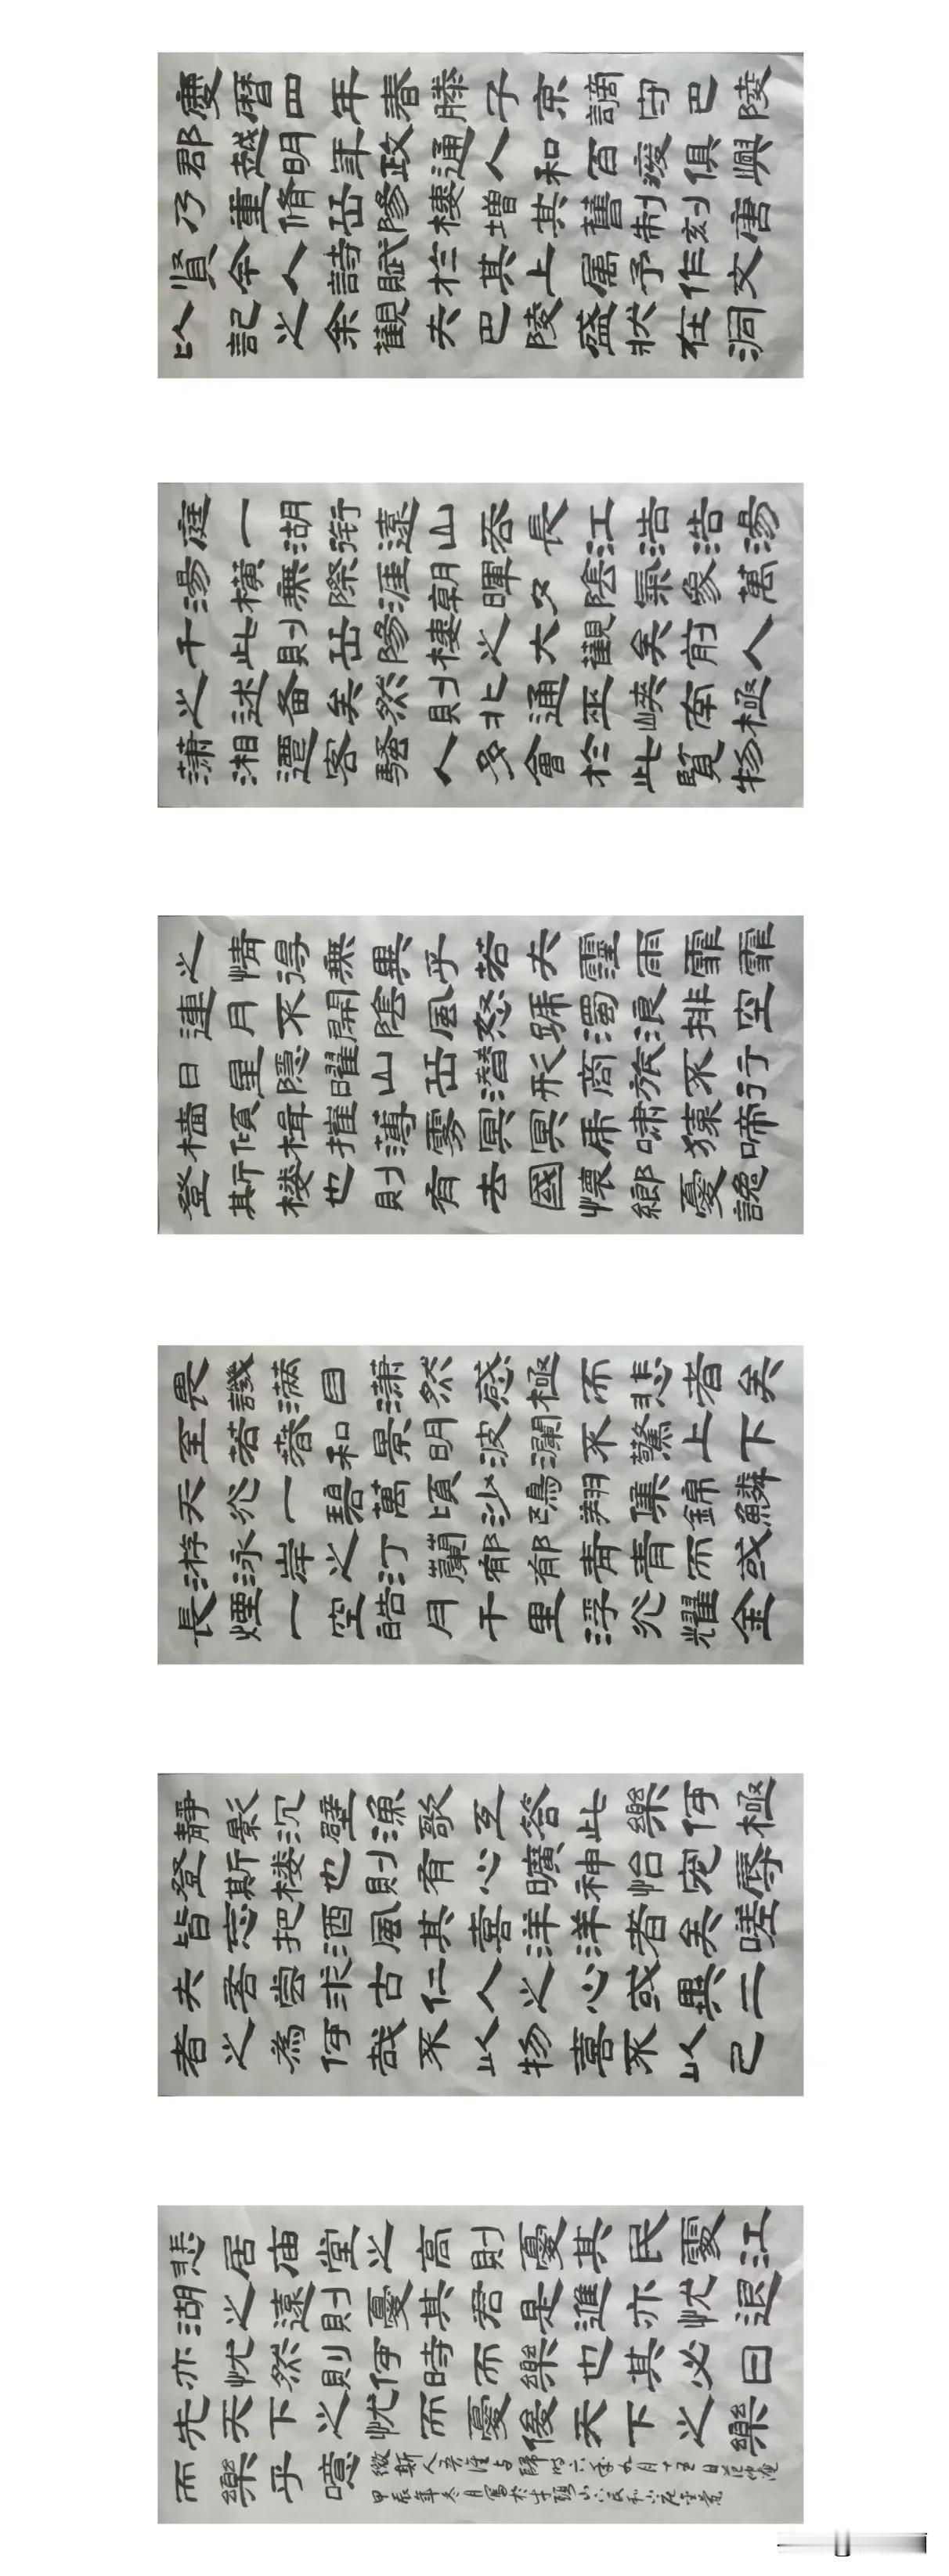 慶曆四年春滕子京謫守巴陵
郡越明年政通人和百廢俱興
乃重脩岳陽樓增其舊制刻唐
賢今人詩賦於其上屬予作文
以記之余觀夫巴陵盛狀在洞
庭一湖銜遠山吞長江浩浩湯
湯橫無際涯朝暉夕陰氣象萬
千此則岳陽樓之大觀矣前人
之述备矣然則北通巫峽南極
瀟湘遷客騷人多會於此覽物
之情得無異乎若夫霪雨霏霏
連月不開陰風怒號濁浪排空
日星隱曜山岳潛形商旅不行
檣傾楫摧薄霧冥冥虎嘯猿啼
登斯楼也則有去國懷鄉憂讒
畏譏滿目瀟然感極而悲者矣
至若春和景明波瀾不驚上下
天光一碧萬頃沙鷗翔集錦鱗
游泳岸之汀蘭郁郁青青而或
長煙一空皓月千里浮光耀金
靜影沉壁漁歌互答此樂何極
登斯楼也則有心曠神怡宠辱
皆忘把酒風其喜洋洋者矣嗟
夫吾嘗求古仁人之心或異二
者之為何哉不以物喜不以己
悲居庙堂之高則憂其民處江
湖之遠則憂其君是進亦忧退
亦忧然則何時而樂也其必曰
先天下之忧而憂後天下之樂
而樂乎噫微斯人吾誰与歸時六年九月十五日范仲淹
甲辰年冬月寫於牛頭山